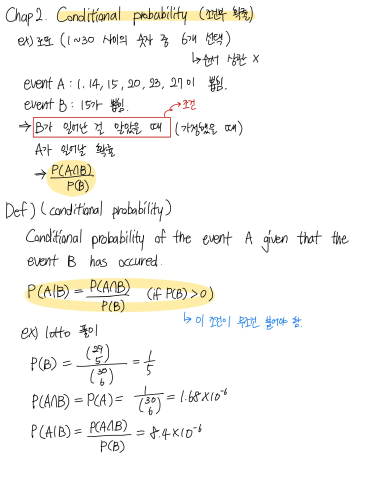 Chap 2. Conditional probability (조건부 확률)
ex) 로또 (1~30 사이의 숫자 중 6개 선택)
↳ 순서 상관 X
event A : 1. 14, 15, 20, 23, 27이 뽑힘.
event B : 15가 뽑힘. → 조건
⇒ B가 일어난 걸 알았을 때 (가정했을 때)
A가 일어날 확률
→ P(A∩B) / P(B)
Def) (conditional probability)
Conditional probability of the event A given that the
event B has occured.
P(A|B) = P(A∩B) / P(B) (if P(B) > 0)
↳ 이 조건이 무조건 붙어야 함.
ex) lotto 풀이
P(B) = (29 5) / (30 6) = 1/5
P(A∩B) = P(A) = 1 / (30 6) = 1.68×10⁻⁶
P(A|B) = P(A∩B) / P(B) = 8.4×10⁻⁶